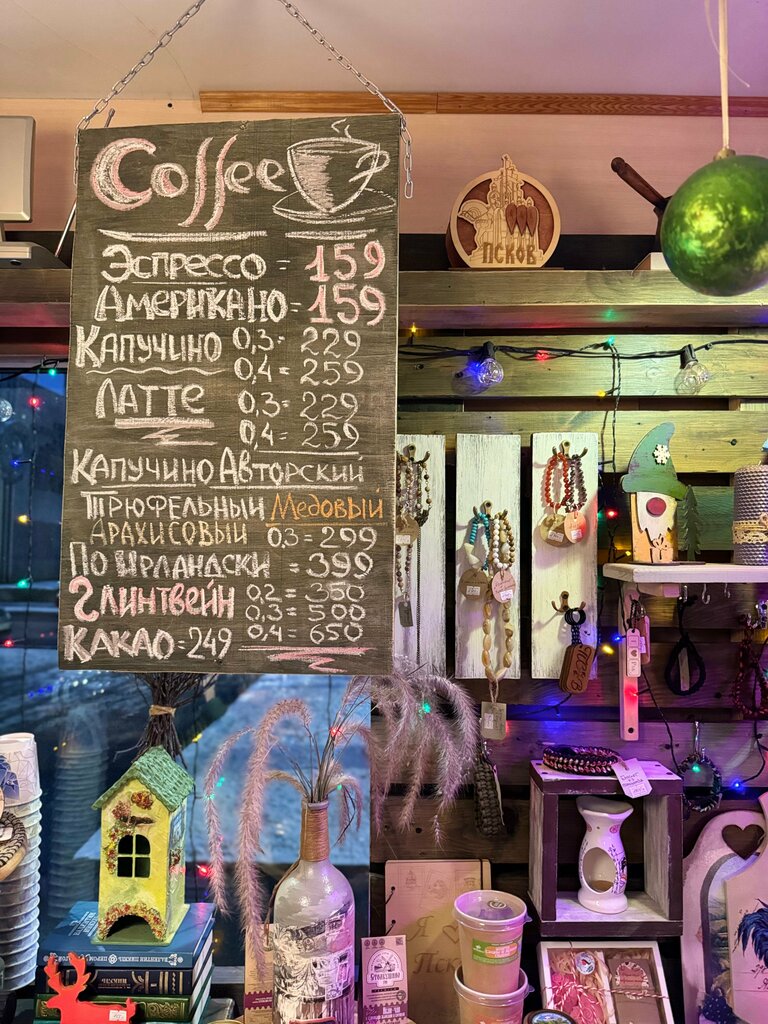 Coffee
Эспрессо = 159
Американо = 159
Капучино 0,3 = 229
0,4 = 259
Латте 0,3 = 229
0,4 = 259
Капучино Авторский
Трюфельный Медовый
Арахисовый 0,3 = 299
По Ирландски = 399
Глинтвейн 0,2 = 350
0,3 = 500
0,4 = 650
Какао = 249
ПСКОВ
Я
Пско